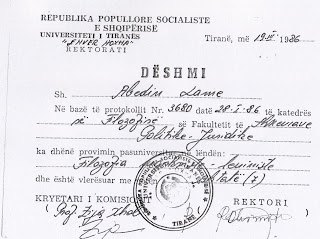 REPUBLIKA POPULLORE SOCIALISTE
E SHQIPËRISE
UNIVERSITETI I TIRANËS
"ENVER HOXHA"
REKTORATI
Tiranë, më 19.II 1986
DËSHMI
Sh. Abedin Lame
Në bazë të protokollit Nr. 3680 datë 28-I-86 të katedrës
së Filozofisë së Fakultetit të Shkencave
Politike-Juridike
ka dhënë provimin pasuniversitar në lëndën:
Filozofia Marksiste-leniniste
dhe është vlerësuar me
KRYETARI I KOMISIONIT
REKTORI
(Prof.
TIRANË